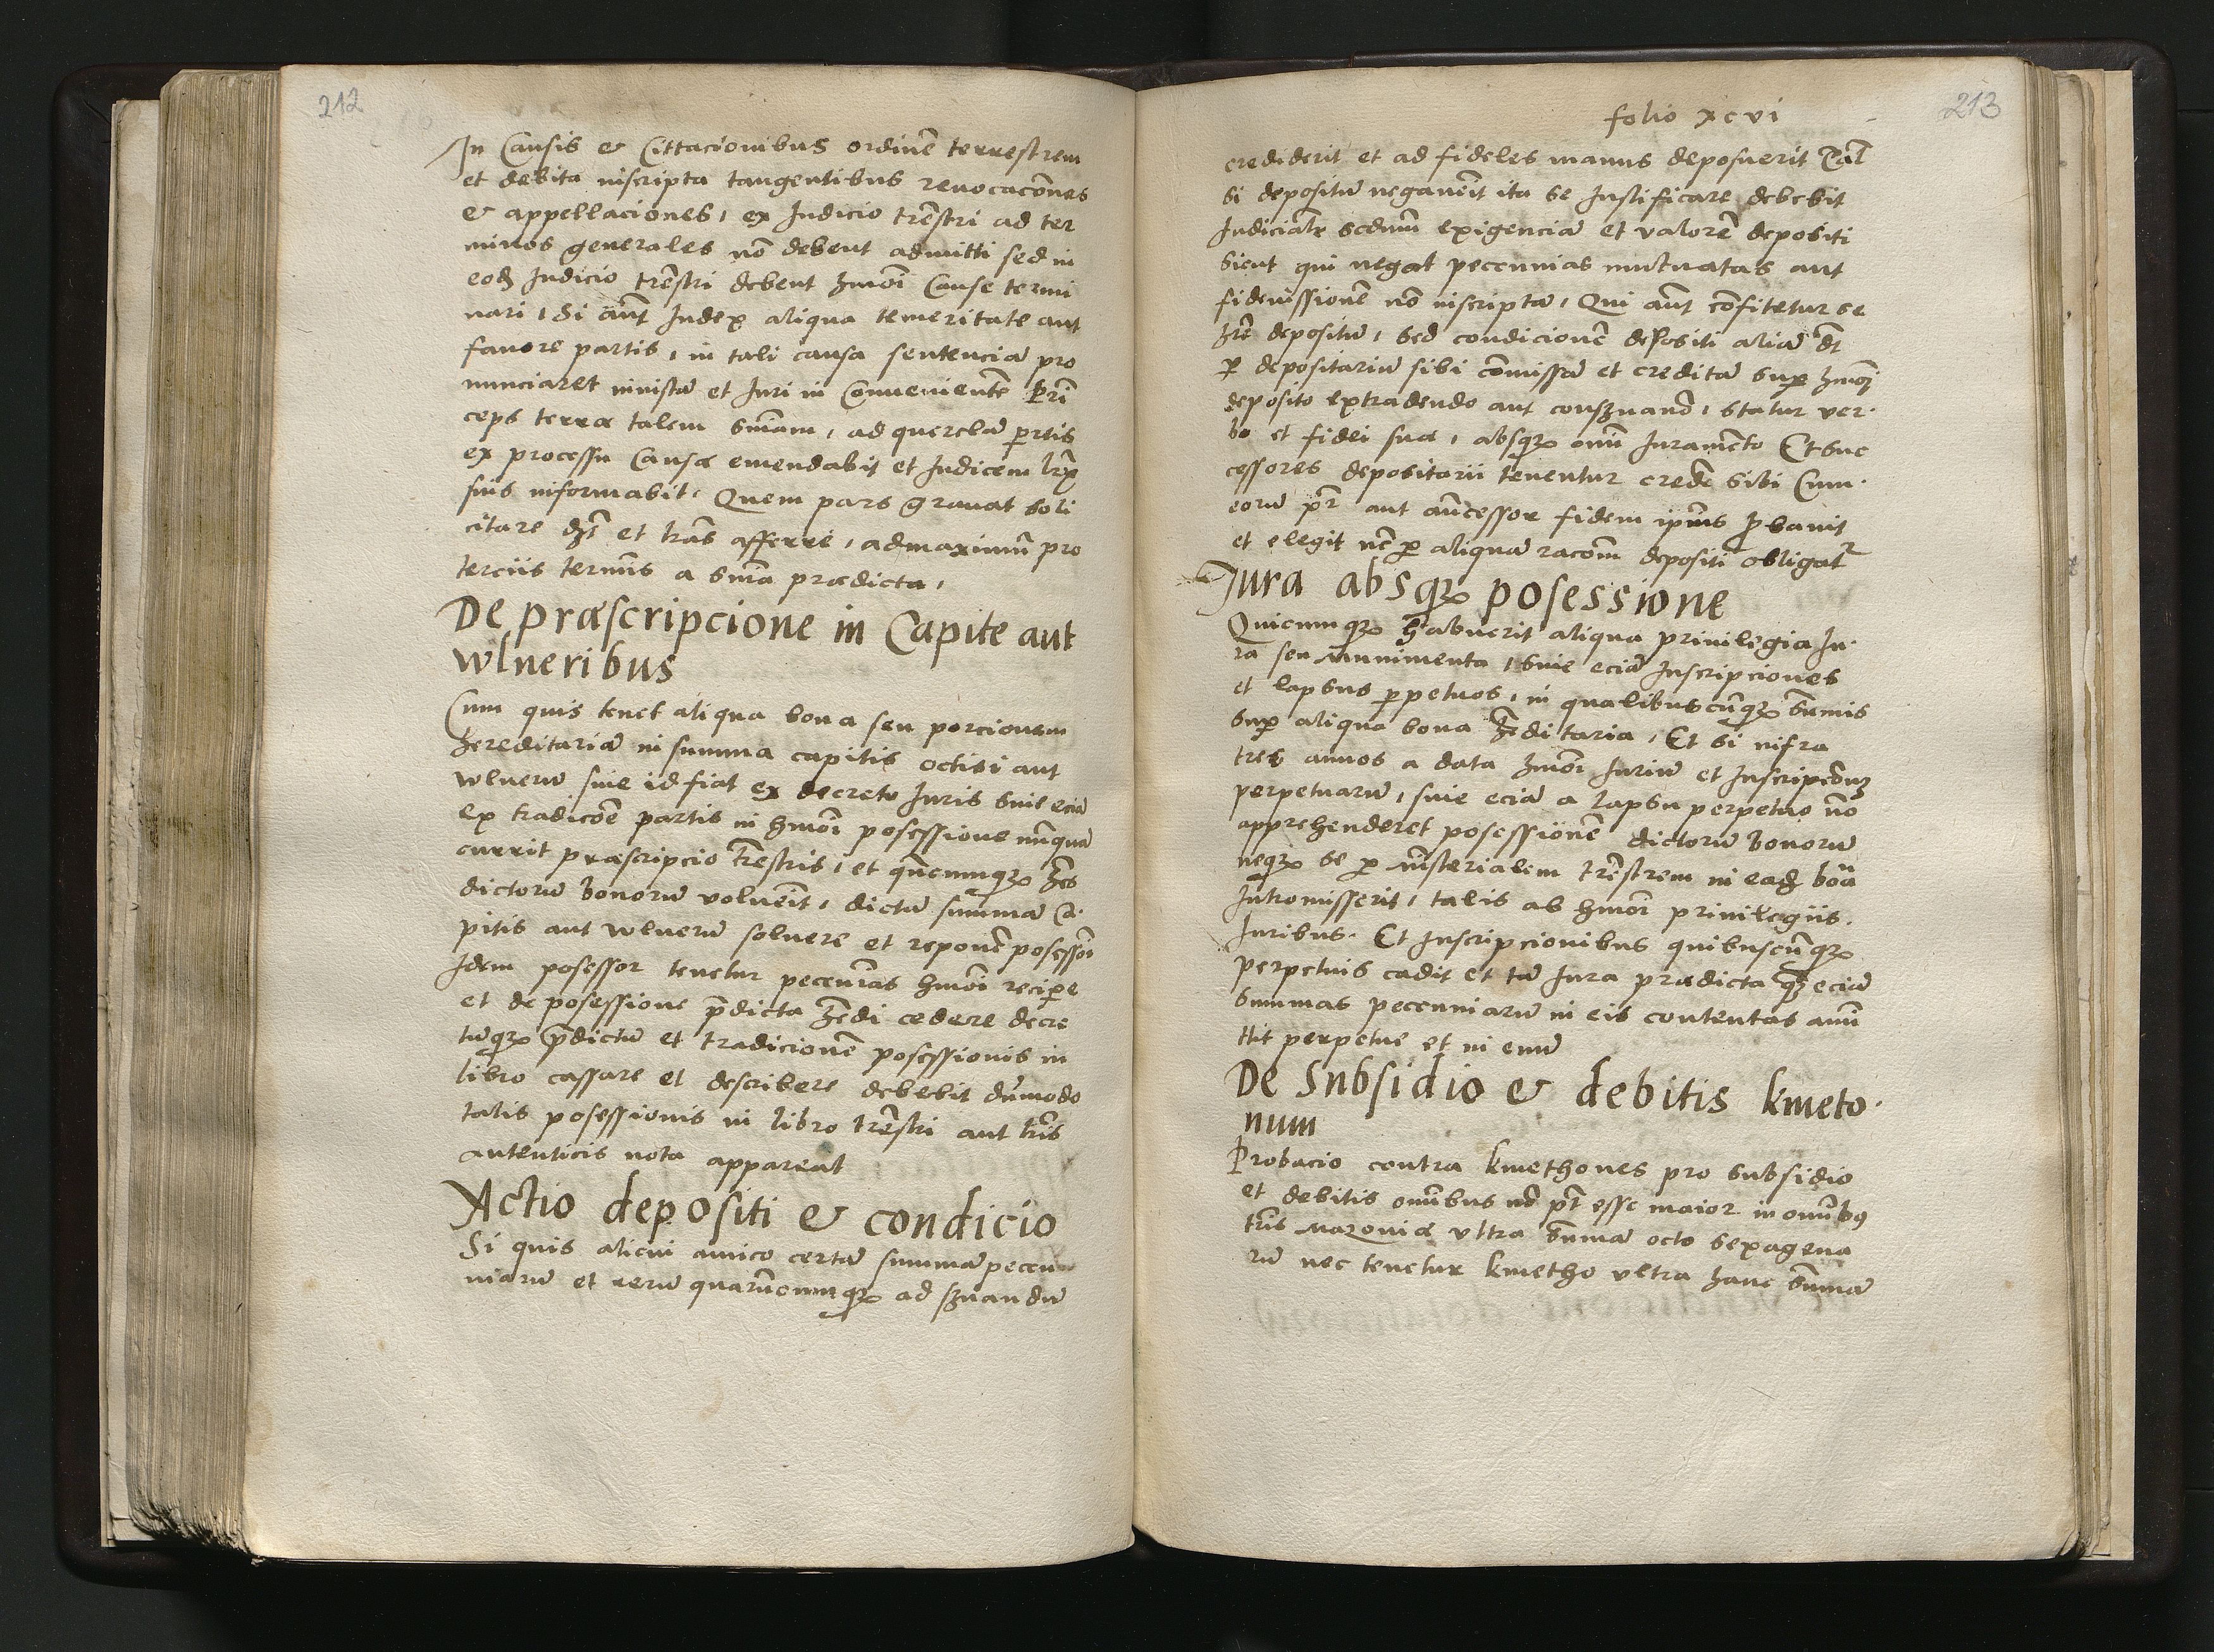 212
In Causis & Cittacionibus ordinē terrestrem
et debita inscripta tangentibus reuocacōnes
& appellaciones, ex Iudicio trēstri ad ter
minos generales nō debent admitti sed in
eodȝ Iudicio trēstri debent hmōi Cause termi
nari, Si aūt Iudex aliqua temeritate aut
fauore partis, in tali causa sentenciā pro
nunciaret iniustā et Iuri in Conuenientē Pri
ceps terræ talem smām, ad querelā ꝑtis
ex processu Causæ emendabit et Iudicem lrīs
suis informabit, Quem pars grauat soli
citare et trās afferre, ad maximū pro
terciis termīs a smā prædicta,
De præscripcione in Capite aut
wlneribus
Cum quis tenet aliqua bona seu porcionem
hereditariā in summa capitis occisi aut
wlnerū siue id fiat ex decreto Iuris siue eciā
ex tradicōē partis in hmōi posessione nūquā
currit præscripcio trēstris, et qn̄cumqꝫ hēs
dictorū bonorū voluerīt, dictā summā Ca
pitis aut wlnerū soluere et reponē̄ posessōri
Idem posessor tenetur pecunīas hmōi reciꝑe
et de posessione p̄dicta hēdi cedere decre
tūqꝫ p̄dictū et tradicionē posessionis in
libro cassare et describere debebit dūmodo
talis posessionis in libro trēstri aut lrīs
autenticis nota appareat
Actio depositi & condicio
Si quis alicui amico certā summā pecun
niarū et rerū quarūcumqꝫ ad ſʒuandū
folio xcvi
213
crediderit et ad fideles manus deposuerit Tāl
si depositū negauerīt ita se Iustificare debebit
Iudicialr̄ scdum exigenciā et valorē depositi
sicut qui negat pecunnias mutuatas aut
fideiussionē nō inscriptā, Qui aūt cōfitetur se
hr̄e depositū, sed condicionē depositi aliā dt̄
ꝑ depositariū sibi cōmissā et creditā suꝑ hmōi
deposito extradendo aut consʒuand̄, statur ver
bo et fidei suæ, absqꝫ omī Iuramēto Et suc
cessores depositarii tenentur credē sibi Cum
eorū pr̄ aut an̄cessor fidem ipīus ꝓbauit
et elegit nc̄ ꝑ aliquā racōm depositi obligatʳ
Iura absqꝫ posessione
Quicumqꝫ habuerit aliqua priuilegia Iu
ra seu Munimenta, siue eciā Inscripciones
et lapsus ꝑpetuos, in qualibuscūqꝫ sūmis
suꝑ aliqua bona hēditaria, Et si infra
tres annos a data hmōi Iuriū et Inscripcōnū
perpetuarū, siue eciā a lapsu perpetuo nō
apprehenderet posessionē dictorū bonorū
neqꝫ se ꝑ mīsterialem trēstrem in eadȝ boā
Intromisserit, talis ab hmōi priuilegiis
Iuribus Et Inscripcionibus quibuscūqꝫ
perpetuis cadit et tā Iura prædicta qȝ eciā
summas pecunniarū in eis contentas ami
ttit perpetue et in euū
De Subsidio & debitis kmeto
num
Probacio contra kmethones pro subsidio
et debitis omībus nō pt̄ esse maior in omībȝ
trīs Mazouiæ vltra sūmā octo sexagena
rū nec tenetur kmetho vltra hanc sūmā